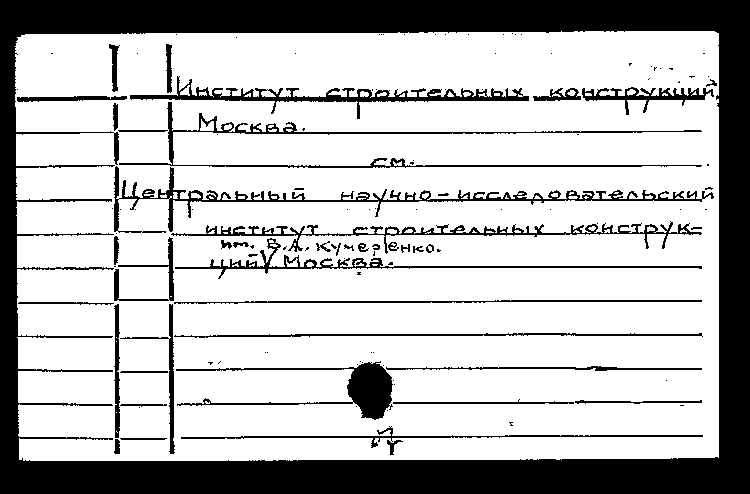 Институт строительных конструкций,
Москва.
см.
Центральный научно-исследовательский
институт строительных конструк-
им. В.А. Кучеренко.
ций√ Москва.